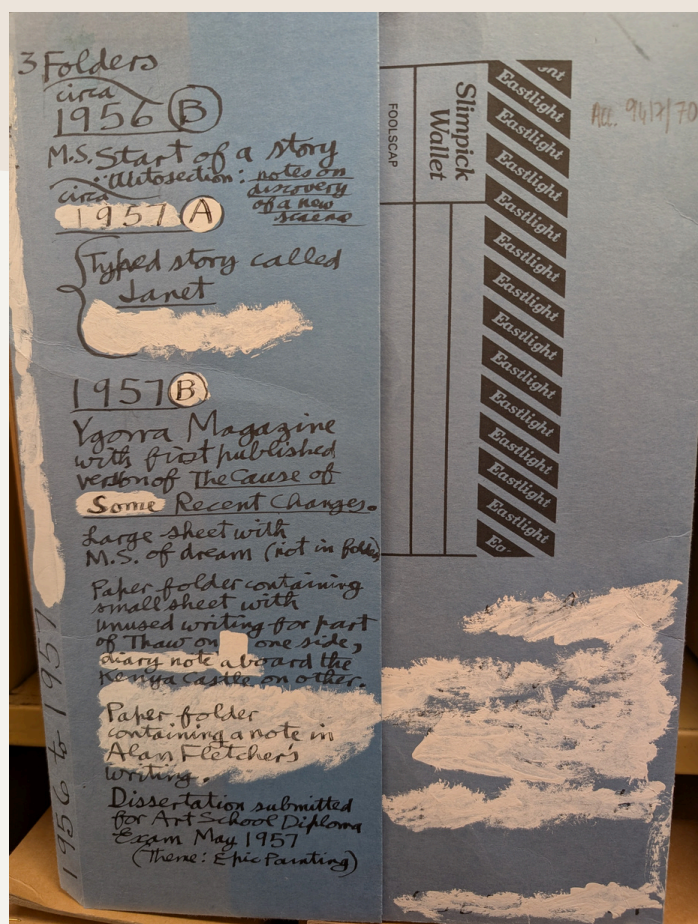 3 Folders
circa
1956 B
M.S. Start of a story
: Autosection: notes on
discovery
of a new
circa
1957 A
Typed story called
Janet
1957 B
Ygorra Magazine
with first published
version of The Cause of
Some Recent Changes.
Large sheet with
M.S. of dream (not in folder)
Paper folder containing
small sheet with
unused writing for part
of Thaw on one side,
diary note aboard the
Kenya Castle on other.
Paper folder
containing a note in
Alan Fletcher's
writing.
Dissertation submitted
for Art School Diploma
Exam May 1957
(Theme: Epic Painting)
1956 to 1957
Slimpick
Wallet
FOOLSCAP
Eastlight
Eastlight
Eastlight
Eastlight
Eastlight
Eastlight
Eastlight
Eastlight
Eastlight
Eastlight
Eastlight
Acc. 9417/70